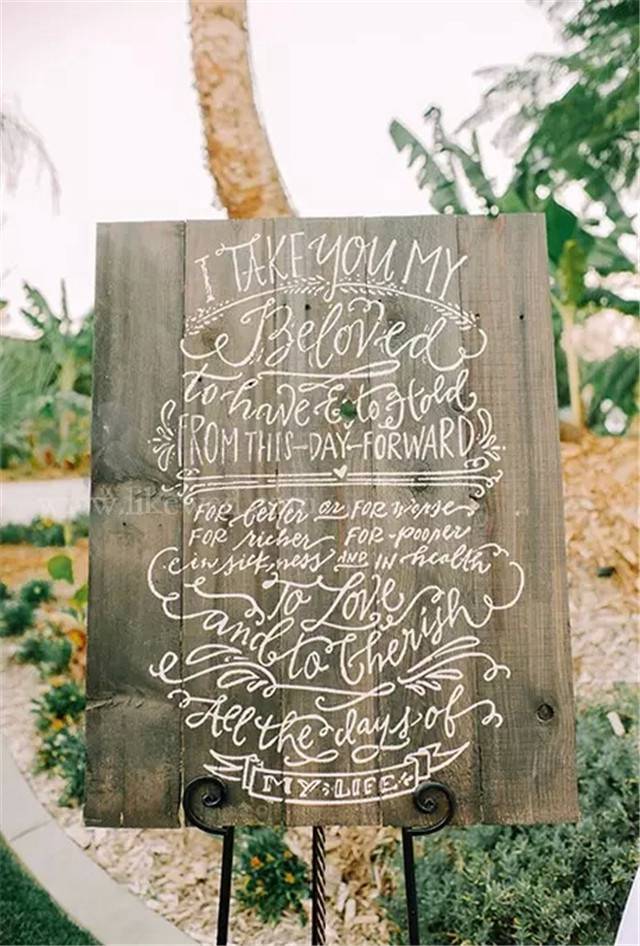 I TAKE YOU MY
Beloved
to have & to Hold
FROM THIS-DAY-FORWARD
FOR better or FOR worse
FOR richer FOR-pooper
in sickness AND IN health
To Love
and to Cherish
All the days of
MY LIFE